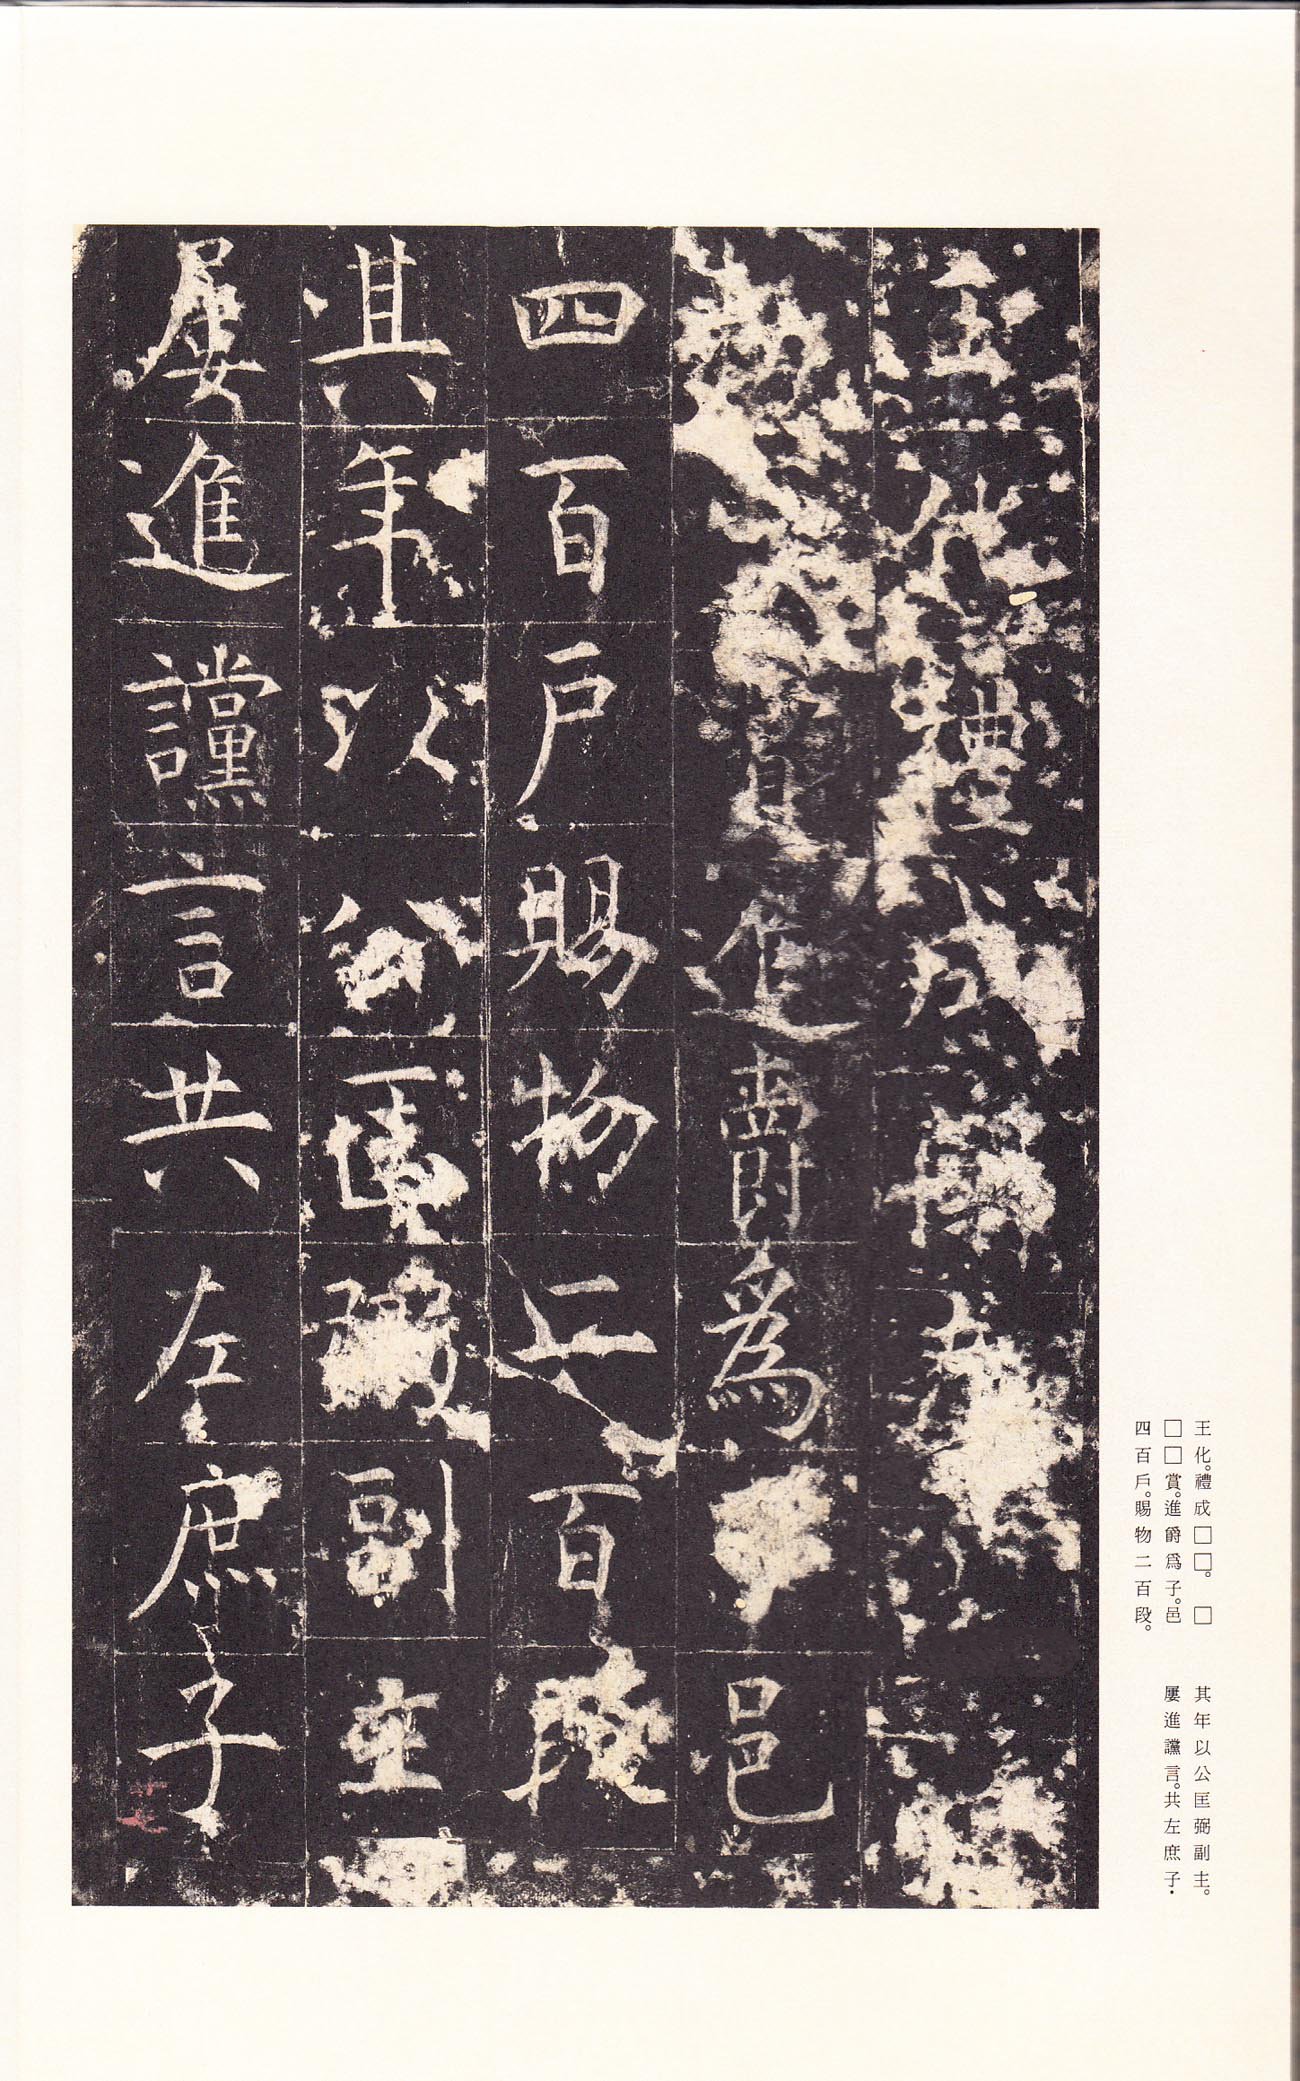 王化禮成
賞進爵爲子邑
四百戶賜物二百段
其年以公匡弼副主
屢進讜言共左庶子
王化。禮成□□。□
□□賞。進爵爲子。邑
四百戶。賜物二百段。
其年以公匡弼副主。
屢進讜言。共左庶子·